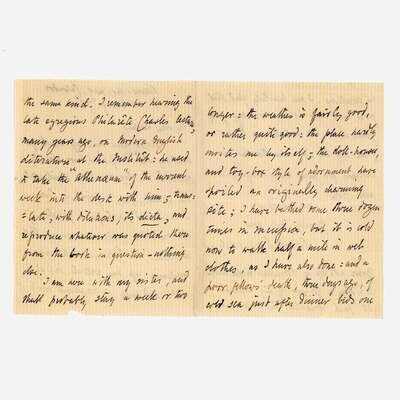 the same kind. I remember hearing the
late egregious Philarète Chasles lecture,
many years ago, on Modern English
Literature at the Institut: he used
to take the "Athenæum" of the current
week into the desk with him; trans=
=late, with dilutions, its dicta, and
reproduce whatever was quoted there
from the book in question - nothing
else.
I am here with my sister, and
shall probably stay a week or two
longer: the weather is fairly good,
or rather quite good: the place hardly
invites me by itself; the doll-house,
and toy-box style of adornment have
spoiled an originally charming
site; I have bathed some three dozen
times in succession, but it is cold
now to walk half a mile in wet
clothes, as I have also done: and a
poor fellow's death, three days ago, of
cold sea just after dinner bids one